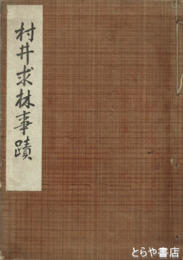 村井求林事蹟
とらや書店